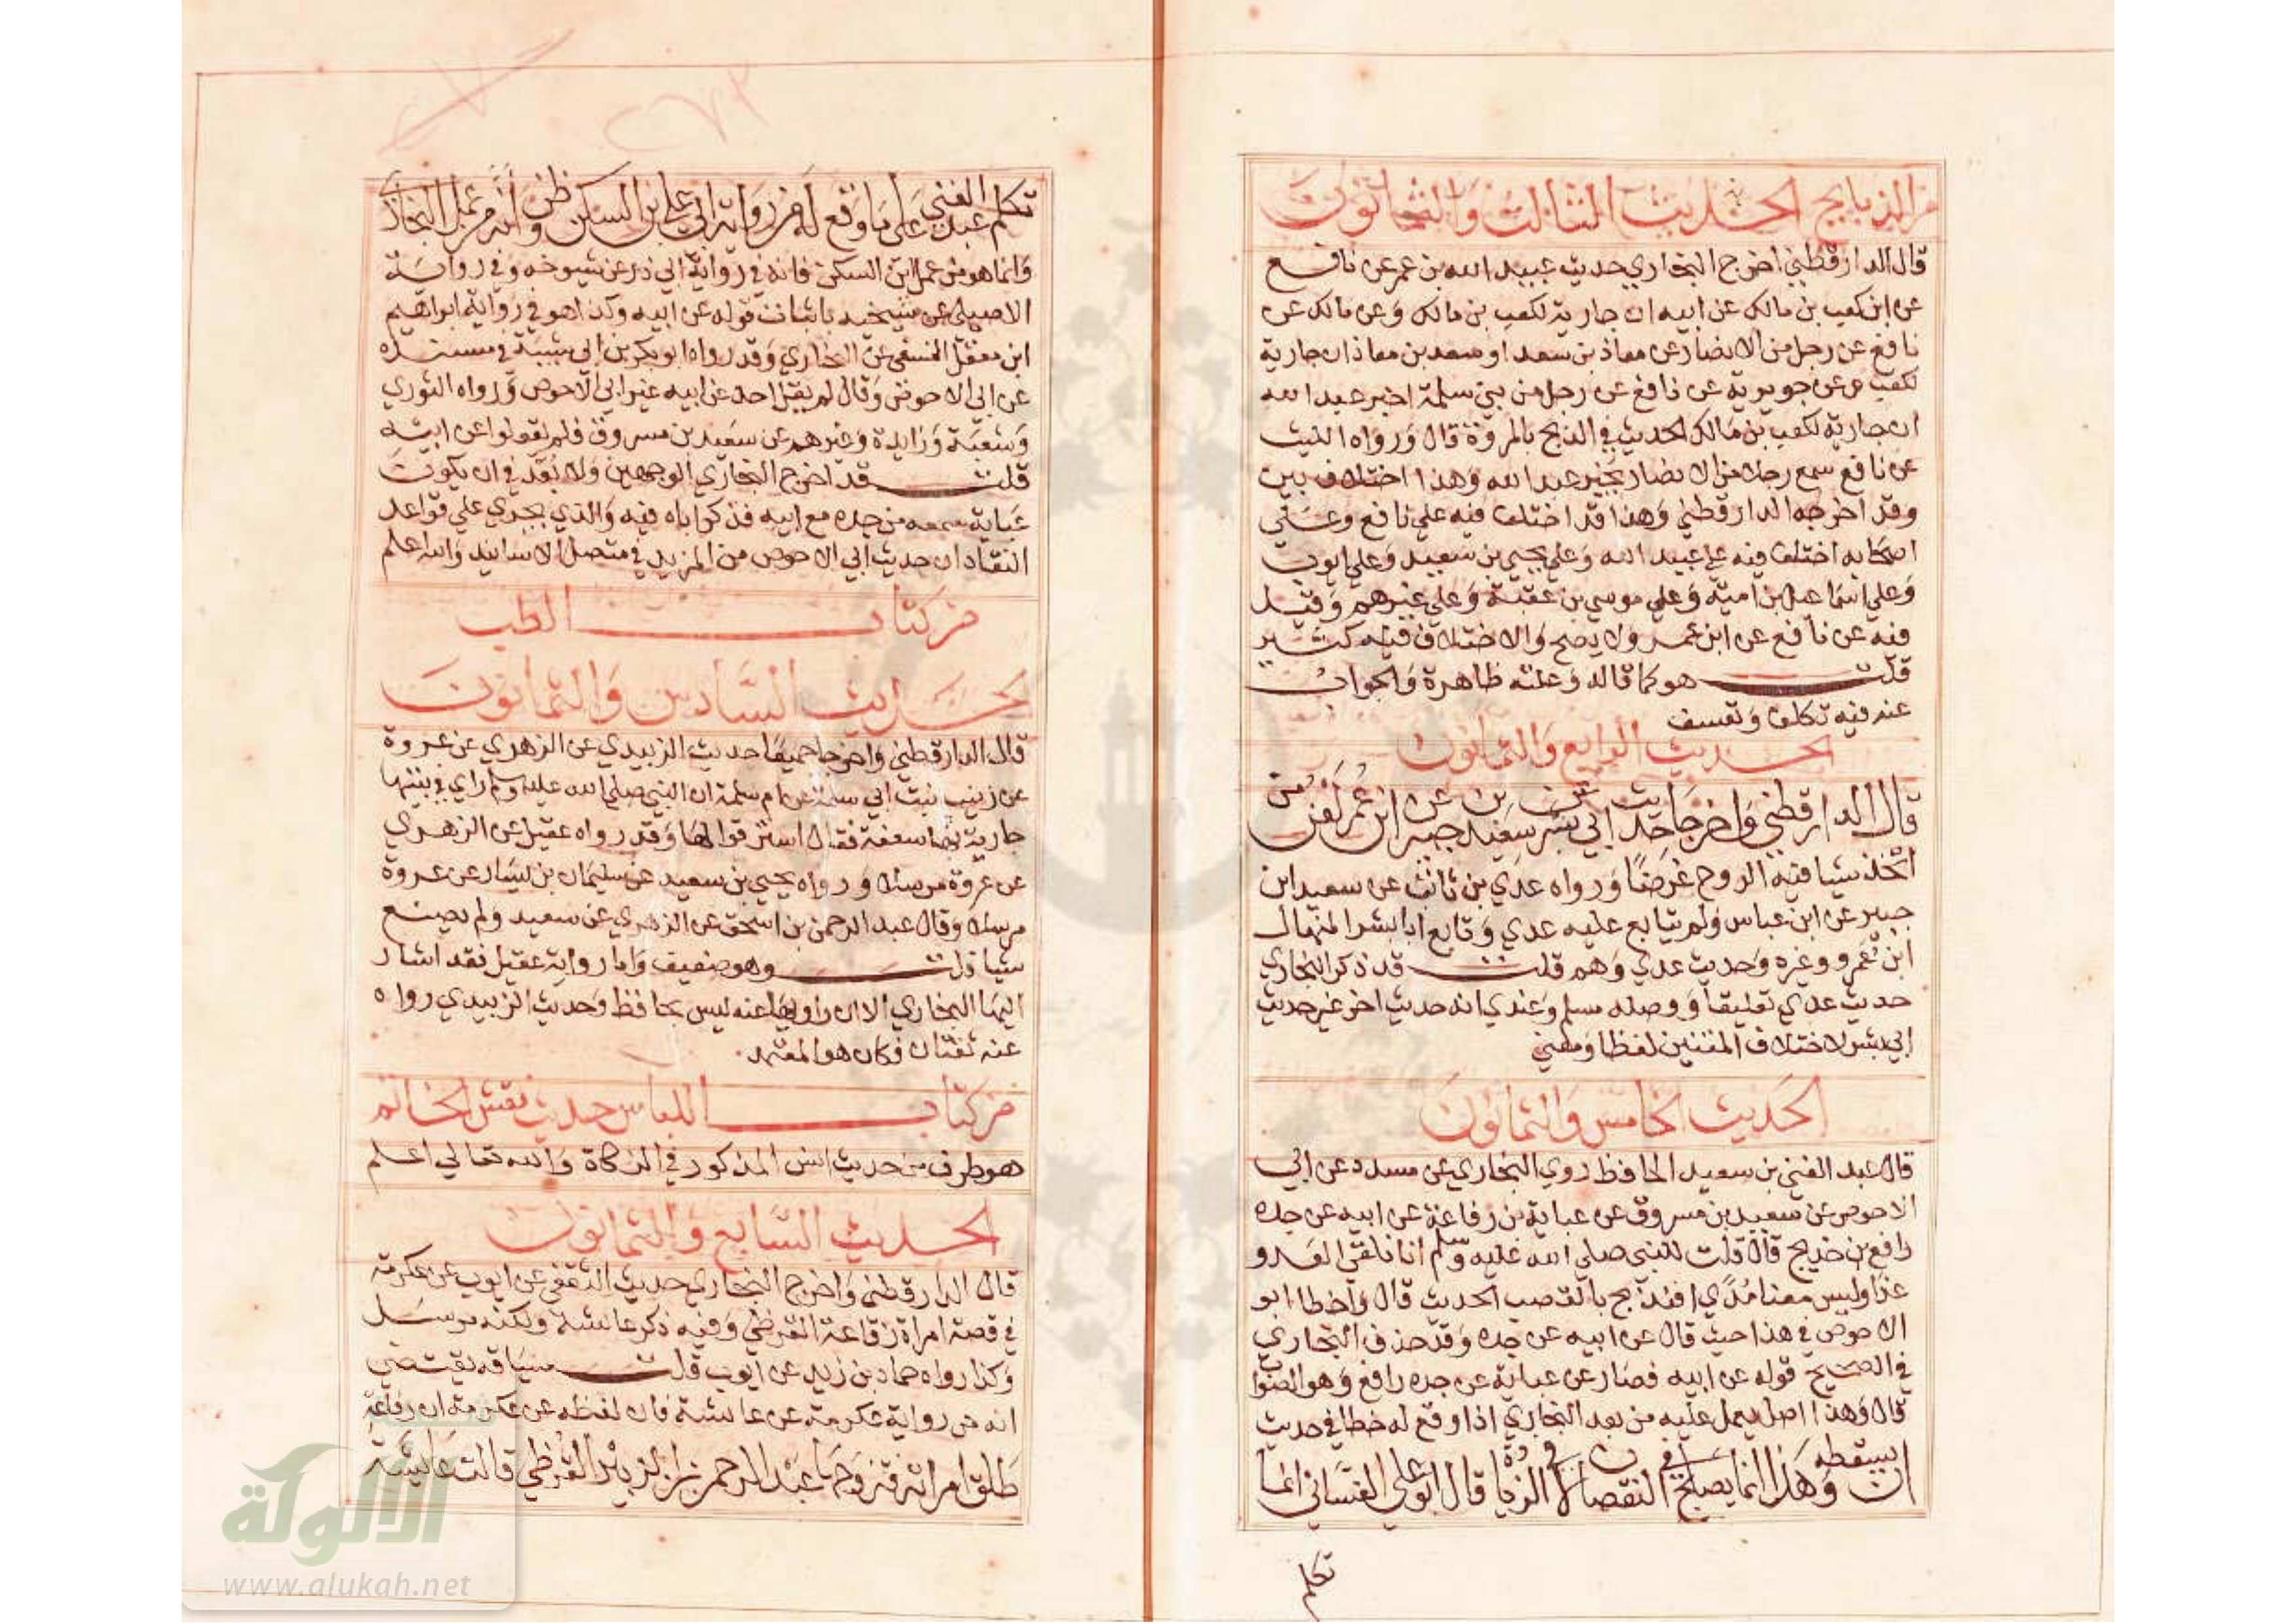 من الذبايح الحديث الثالث والثمانون
قال الدارقطني اخرج البخاري حديث عبيد الله بن عمر عن نافع
عن ابن كعب بن مالك عن ابيه ان جارية لكعب بن مالك وعن مالك عن
نافع عن رجل من الانصار عن معاذ بن سعد او سعد بن معاذ ان جارية
لكعب وعن جويرية عن نافع عن رجل من بني سلمة اخبر عبد الله
ان جارية لكعب بن مالك الحديث في الذبح بالمروة قال ورواه الليث
عن نافع سمع رجلا من الانصار يخبر عبد الله وهذا اختلاف بين
وقد اخرجه الدارقطني وهذا قد اختلف فيه علي نافع وعلي
اصحابه اختلف فيه علي عبيد الله وعلي يحيي بن سعيد وعلي ايوب
وعلي اسماعيل بن امية وعلي موسي بن عقبة وعلي غيرهم وقيل
فيه عن نافع عن ابن عمر ولا يصح والاختلاف فيه كثير
قلت هو كما قال وعلته ظاهرة والجواب
عنه فيه تكلف وتعسف
الحديث الرابع والثمانون
قال الدارقطني واخرجا حديث ابي بشر عن سعيد بن جبير عن ابن عمر لعن من
اتخذ شيا فيه الروح غرضا ورواه عدي بن ثابت عن سعيد ابن
جبير عن ابن عباس ولم يتابع عليه عدي وتابع ابا بشر المنهال
ابن عمرو وغيره وحديث عدي وهم قلت قد ذكر البخاري
حديث عدي تعليقا ووصله مسلم وعندي انه حديث اخر غير حديث
ابي بشر لاختلاف المتنين لفظا ومعني
الحديث الخامس والثمانون
قال عبد الغني بن سعيد الحافظ روي البخاري عن مسدد عن ابي
الاحوص عن سعيد بن مسروق عن عباية بن رفاعة عن ابيه عن جده
رافع بن خديج قال قلت للنبي صلي الله عليه وسلم اننا نلقي العدو
غدا وليس معنا مدي افنذبح بالقصب الحديث قال واخطا ابو
الاحوص في هذا حيث قال عن ابيه عن جده وقد حذف البخاري
في الصحيح قوله عن ابيه فصار عن عباية عن جده رافع وهو الصواب
قال وهذا اصل يعمل عليه من بعد البخاري اذا وقع له خطا في حديث
ان يسقطه وهذا انما يصلح في النقصان لا في الزيادة قال ابو علي الغساني انما
تكلم
تكلم عبد الغني علي ما وقع له من رواية ابي علي ابن السكن وظن انه من عمل البخاري
وانما هو من عمل ابن السكن فانه في رواية ابي ذر عن شيوخه وفي رواية
الاصيلي عن شيخيه باثبات قوله عن ابيه وكذا هو في رواية ابراهيم
ابن معقل النسفي عن البخاري وقد رواه ابو بكر بن ابي شيبة في مسنده
عن ابي الاحوص وقال لم يقل احد عن ابيه غير ابي الاحوص ورواه الثوري
وشعبة وزايدة وغيرهم عن سعيد بن مسروق فلم يقولوا عن ابيه
قلت قد اخرج البخاري الوجهين ولا بعد في ان يكون
عباية سمعه من جده مع ابيه فذكر اباه فيه والذي يجري علي قواعد
النقاد ان حديث ابي الاحوص من المزيد في متصل الاسانيد والله اعلم
من كتاب الطب
الحديث السادس والثمانون
قال الدارقطني واخرجا جميعا حديث الزبيدي عن الزهري عن عروة
عن زينب بنت ابي سلمة عن ام سلمة ان النبي صلي الله عليه وسلم راي في بيتها
جارية بها سعفة فقال استرقوا لها وقد رواه عقيل عن الزهري
عن عروة مرسلا ورواه يحيي بن سعيد عن سليمان بن يسار عن عروة
مرسلا وقال عبد الرحمن بن اسحق عن الزهري عن سعيد ولم يصنع
شيا قلت وهو ضعيف واما رواية عقيل فقد اشار
اليها البخاري الا ان راويها عنه ليس بحافظ وحديث الزبيدي رواه
عنه ثقتان فكان هو المعتمد
من كتاب اللباس حديث نقش الخاتم
هو طرف من حديث انس المذكور في الزكاة والله تعالي اعلم
الحديث السابع والثمانون
قال الدارقطني واخرج البخاري حديث الثقفي عن ايوب عن عكرمة
في قصة امراة رفاعة القرظي وفيه ذكر عائشة ولكنه مرسل
وكذا رواه حماد بن زيد عن ايوب قلت سياقه يقتضي
انه من رواية عكرمة عن عائشة فان لفظه عن عكرمة ان رفاعة
طلق امراته فتزوجها عبد الرحمن بن الزبير القرظي قالت عائشة
الألوكة
www.alukah.net